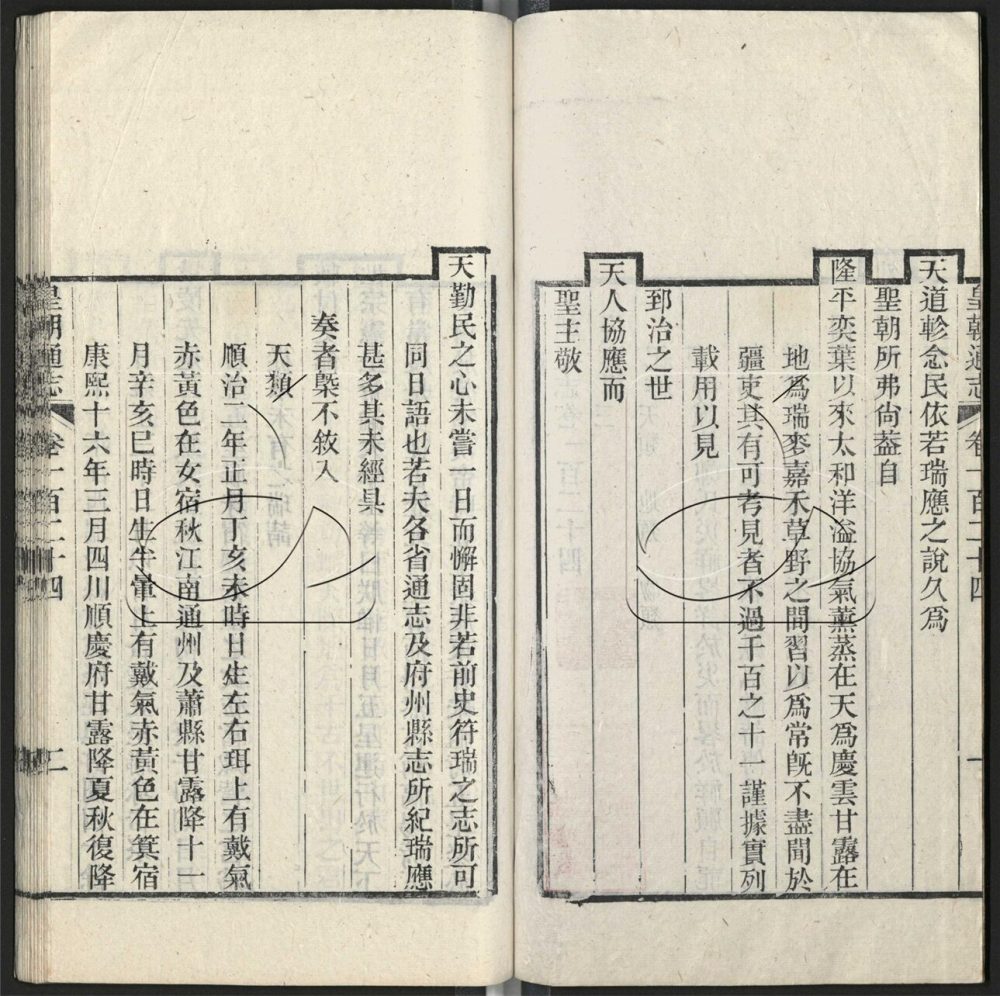 皇朝通志 卷一百二十四 一
天道軫念民依若瑞應之說久爲
聖朝所弗尙葢自
隆平奕葉以來太和洋溢協氣薰蒸在天爲慶雲甘露在
地爲瑞麥嘉禾草野之間習以爲常旣不盡聞於
疆吏其有可考見者不過千百之十一謹據實列
載用以見
郅治之世
天人協應而
聖主敬
天勤民之心未嘗一日而懈固非若前史符瑞之志所可
同日語也若夫各省通志及府州縣志所紀瑞應
甚多其未經具
奏者槩不敘入
天類
順治二年正月丁亥未時日生左右珥上有戴氣
赤黃色在女宿秋江南通州及蕭縣甘露降十一
月辛亥巳時日生半暈上有戴氣赤黃色在箕宿
康熙十六年三月四川順慶府甘露降夏秋復降
皇朝通志 卷一百二十四 二